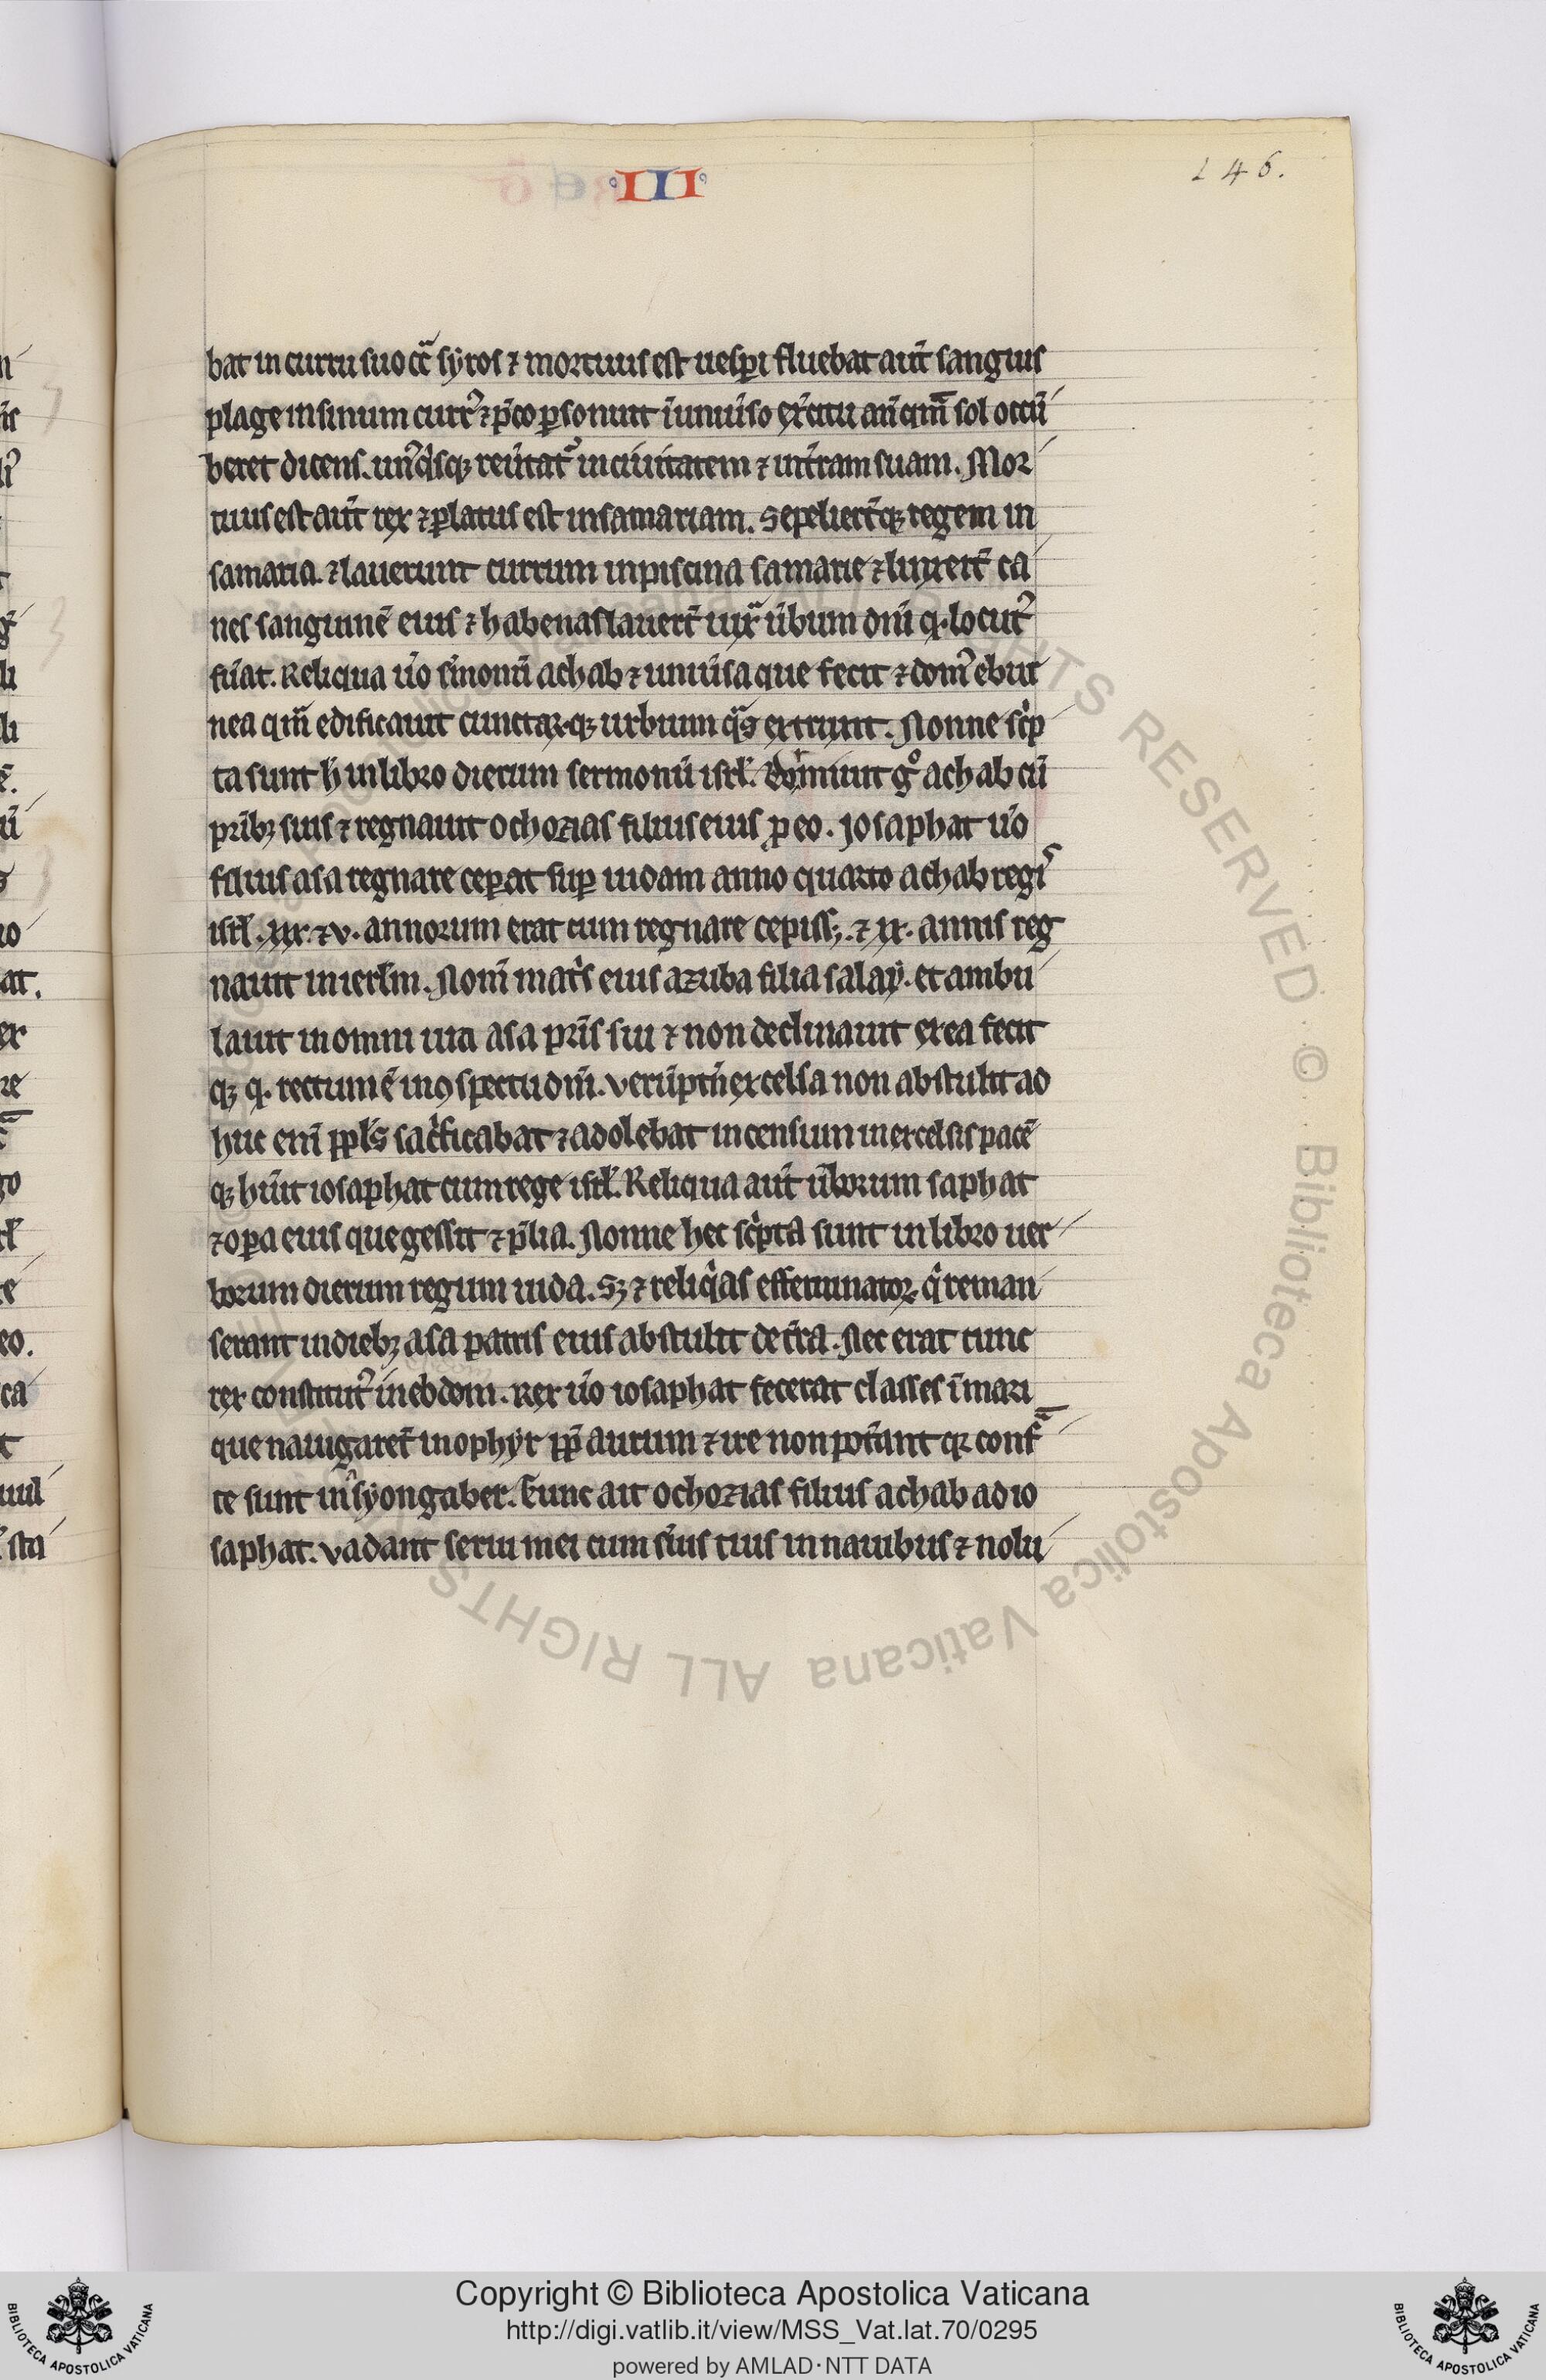 ·III·
246.
bat in curru suo ct̃a sẏros ⁊ mortuus est uesꝑi fluebat aut̃ sanguis
plage in sinum curr᷒ ⁊ p̃co ꝑsonuit ĩ uniũso exc̃itu anͥ qm̃ sol occũ
beret dicens. un᷒qͥsqꝫ reũtat᷒ in ciuitatem ⁊ in t̃ram suam. Mor
tuus est aut̃ rex ⁊ ꝑlatus est in samariam. Sepelier̃tqꝫ regem in
samaria. ⁊ lauerunt currum in piscina samarie ⁊ linxer̃t ca
nes sanguinẽ eius ⁊ habenas lauer̃t iuxͣ ũbum dñi qͩ locut᷒
fũat. Reliqua ũo s̃monũ achab ⁊ uniũsa que fecit ⁊ dom᷒ ebur
nea qm̃ edificauit cunctaꝝqꝫ urbium qͣs extruxit. Nonne sc̃p
ta sunt h̃ in libro dierum sermonũ isrl̃. Dormiuit gͦ achab cũ
pr̃ibꝫ suis ⁊ regnauit ochozias filius eius ꝓ eo. Josaphat ũo
filius asa regnare ceꝑat suꝑ iudam anno quarto achab regis
isrl̃. xxx. ⁊ v. annorum erat cum regnare cepissꝫ. ⁊ xx. annis reg
nauit in ierl̃m. Nom̃ mat̃s eius azuba filia salaẏ. et ambu
lauit in omni uia asa pr̃is sui ⁊ non declinauit ex ea fecit
qꝫ qͩ rectum ẽ in ꝯspectu dñi. Verũptñ excelsa non abstulit ad
huc eni᷒ ppl̃s sac̃ficabat ⁊ adolebat incensum in excelsis pacẽ
qꝫ hũit iosaphat cum rege isrl̃. Reliqua aut̃ ũborum saphat
⁊ oꝑa eius que gessit ⁊ p̃lia. Nonne hec sc̃pta sunt in libro uer
borum dierum regum iuda. Sꝫ ⁊ reliqͥas effeminatoꝝ qͥ reman
serant in diebꝫ asa patris eius abstulit de t̃ra. Nec erat tunc
rex constitut᷒ in edom. Rex ũo iosaphat fecerat classes ĩ mari
que nauigarẽt in ophẏr pp̃ aurum ⁊ ire non pot̃ant qꝛ conf̃c
te sunt in asẏongaber. Tunc ait ochozias filius achab ad io
saphat. Vadant serui mei cum s̃uis tuis in nauibus ⁊ nolu
© Biblioteca Apostolica Vaticana ALL RIGHTS RESERVED
BIBLIOTECA APOSTOLICA VATICANA
Copyright © Biblioteca Apostolica Vaticana
http://digi.vatlib.it/view/MSS_Vat.lat.70/0295
powered by AMLAD·NTT DATA
BIBLIOTECA APOSTOLICA VATICANA